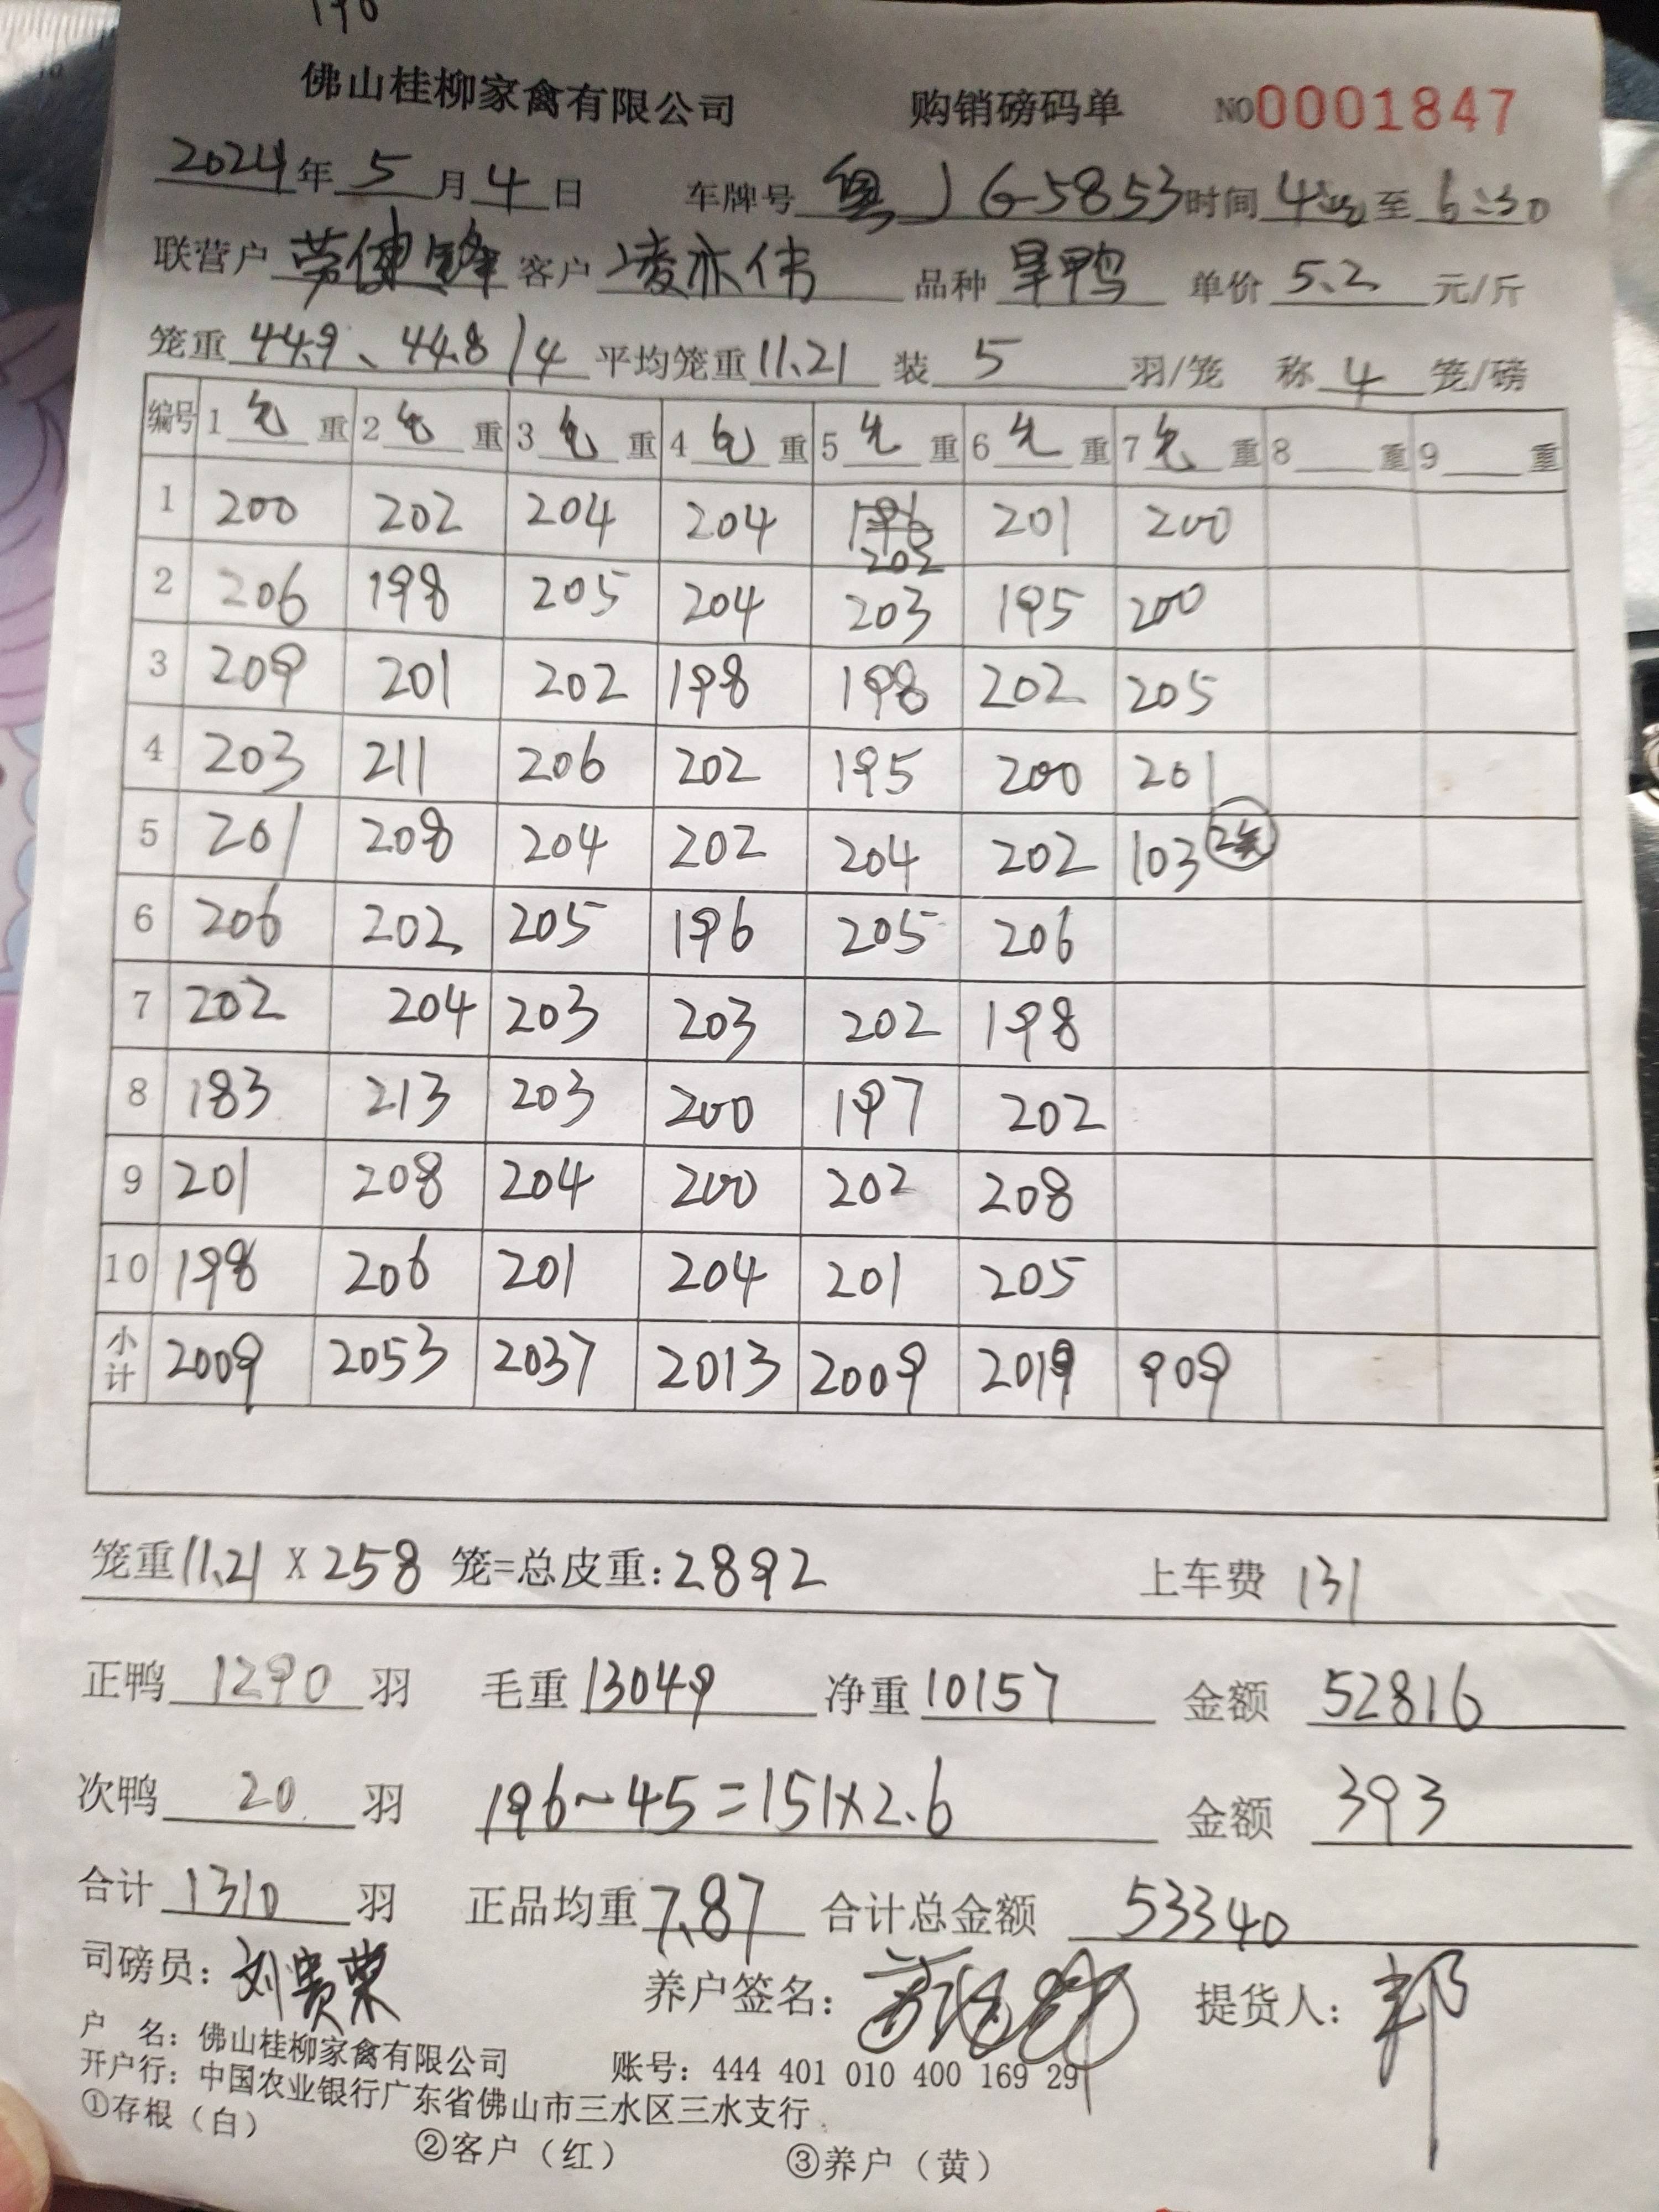 196
佛山桂柳家禽有限公司 购销磅码单 NO0001847
2024年5月4日 车牌号 粤JG5853 时间 至 6:30
联营户 劳健锋 客户 凌亦伟 品种 旱鸭 单价 5.2 元/斤
笼重 44.9、44.8/4 平均笼重 11.21 装 5 羽/笼 称 4 笼/磅
编号 1 毛 重 2 毛 重 3 毛 重 4 毛 重 5 毛 重 6 毛 重 7 毛 重 8 重 9 重
1 200 202 204 204 196 202 201 200
2 206 198 205 204 203 195 200
3 209 201 202 198 198 202 205
4 203 211 206 202 195 200 201
5 201 208 204 202 204 202 103 2笼
6 206 202 205 196 205 206
7 202 204 203 203 202 198
8 183 213 203 200 197 202
9 201 208 204 200 202 208
10 198 206 201 204 201 205
小计 2009 2053 2037 2013 2009 2019 909
笼重 11.21 X 258 笼=总皮重: 2892 上车费 131
正鸭 1290 羽 毛重 13049 净重 10157 金额 52816
次鸭 20 羽 196-45=151×2.6 金额 393
合计 1310 羽 正品均重 7.87 合计总金额 53340
司磅员: 刘贵荣 养户签名: 提货人: 邦
户 名: 佛山桂柳家禽有限公司 账号: 444 401 010 400 169 29
开户行: 中国农业银行广东省佛山市三水区三水支行
①存根（白） ②客户（红） ③养户（黄）